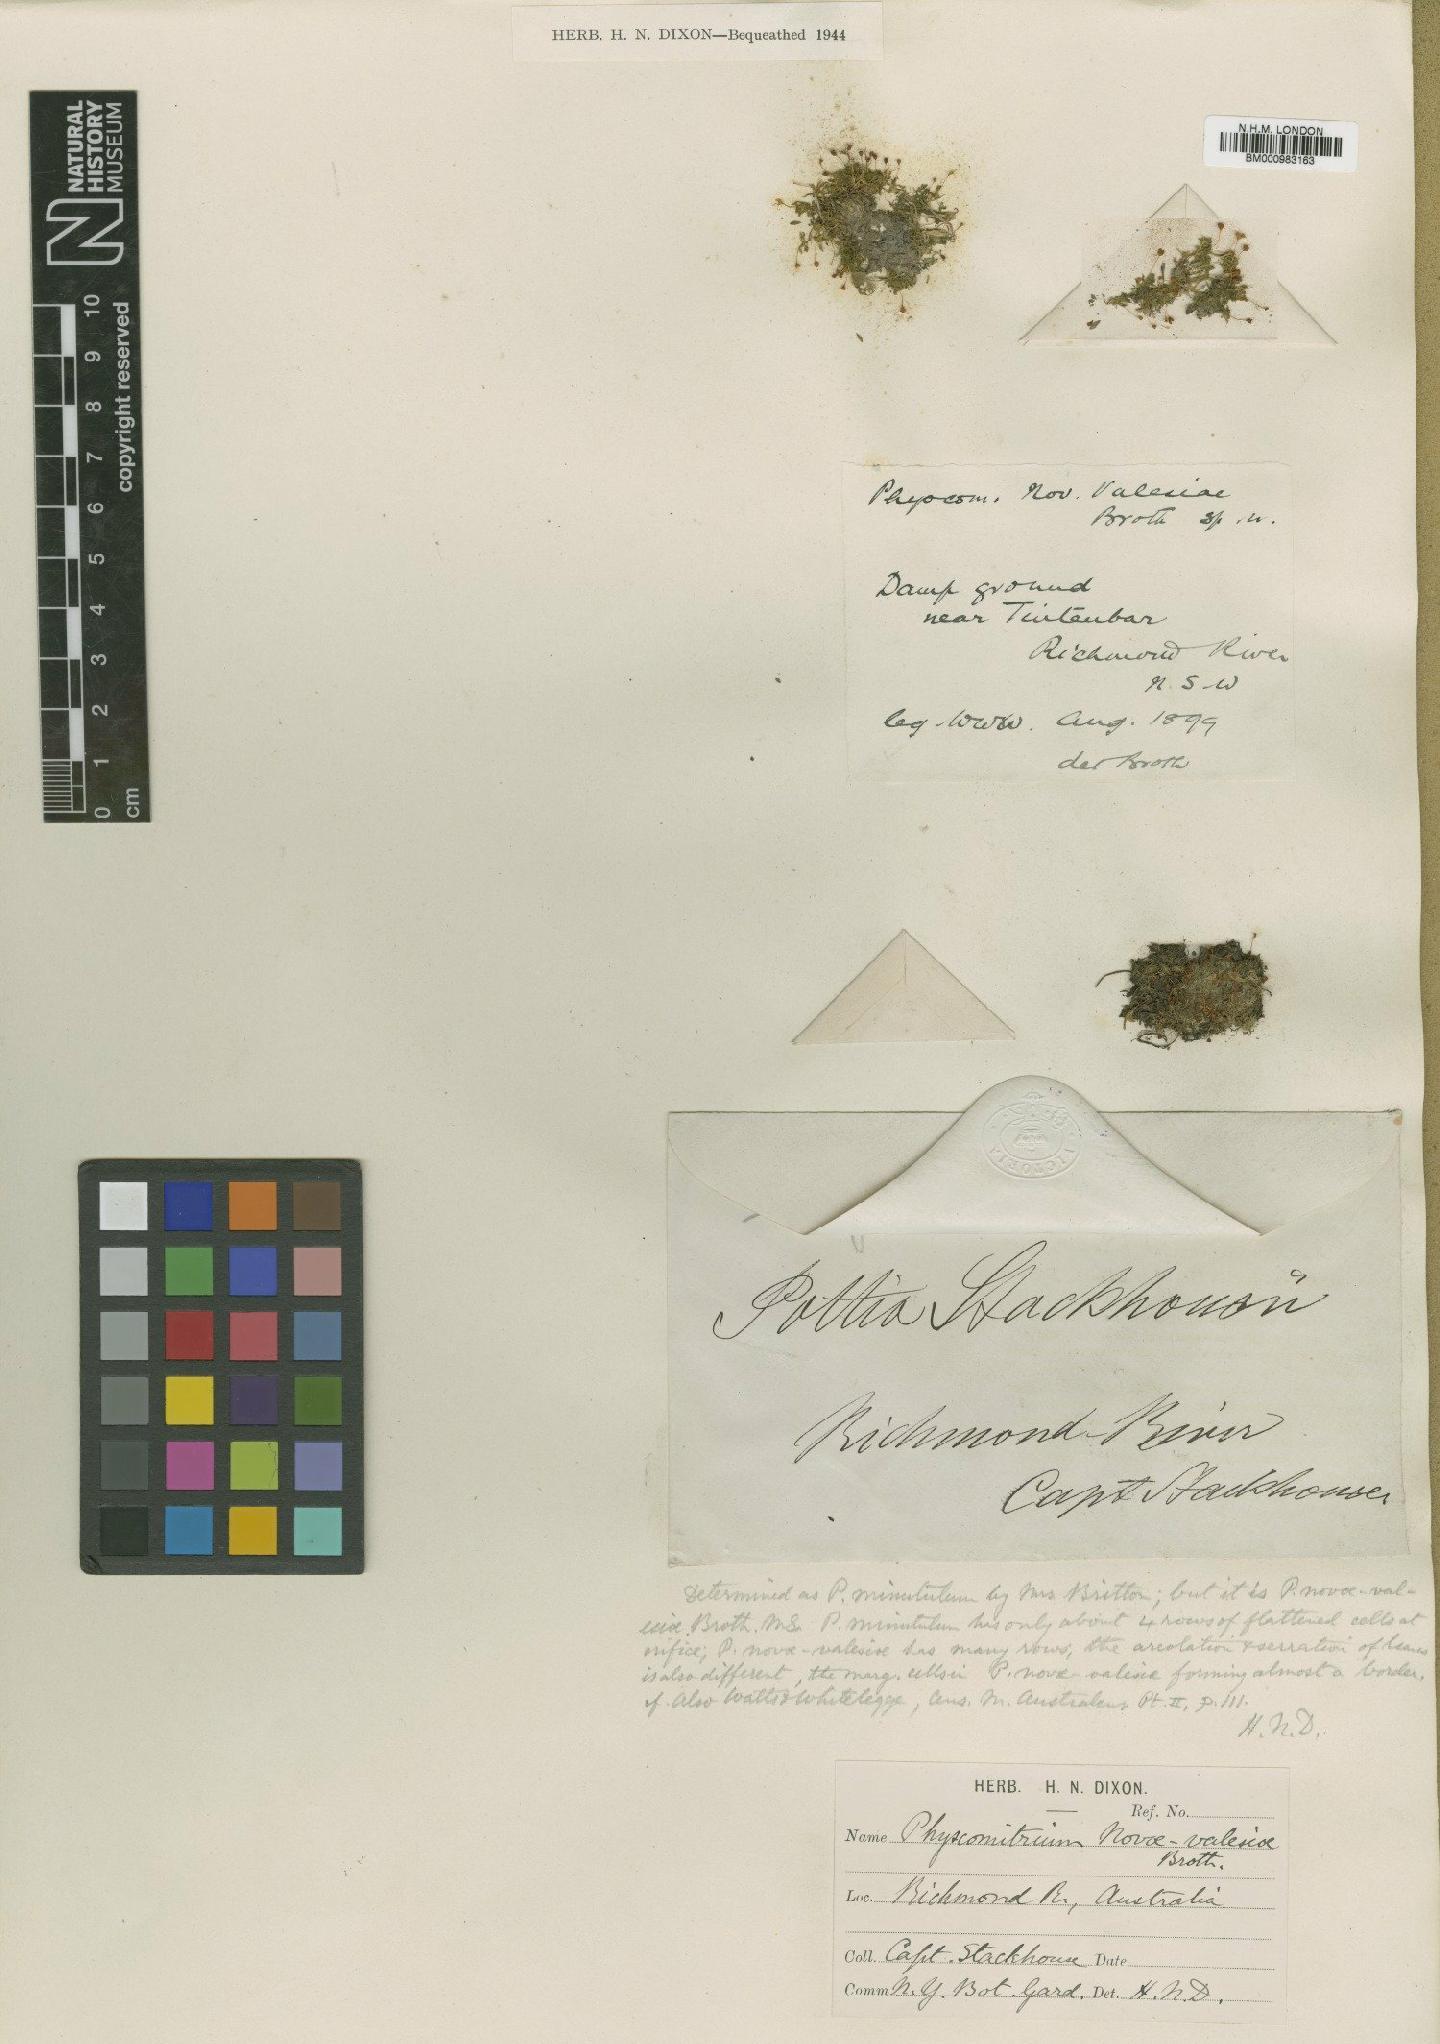 HERB. H. N. DIXON—Bequeathed 1944
NATURAL
HISTORY
MUSEUM
copyright reserved
10
9
8
7
6
5
4
3
2
1
0
cm
N.H.M. LONDON
BM000983163
Physcom. Nov. Valesiae
Broth sp. n.
Damp ground
near Tintenbar
Richmond River
N. S. W
leg. WWW. Aug. 1899
det Broth
VICTORIA
Pottia Stackhousii
Richmond River
Capt Stackhouse
Determined as P. minutulum by Mrs Britton; but it is P. novæ-val-
esiæ Broth. MS. P. minutulum has only about 4 rows of flattened cells at
orifice; P. novæ-valesiæ has many rows, the areolation & serration of leaves
is also different, the marg. cells in P. novæ-valesiæ forming almost a border.
cf. also Watts & Whitelegge, Cens. M. Australiens. Pt. II, p. 111.
H. N. D.
HERB. H. N. DIXON.
Ref. No.
Name Physcomitrium Novæ-valesiæ
Broth.
Loc. Richmond R., Australia
Coll. Capt. Stackhouse Date
Comm N. Y. Bot. Gard. Det. H. N. D.